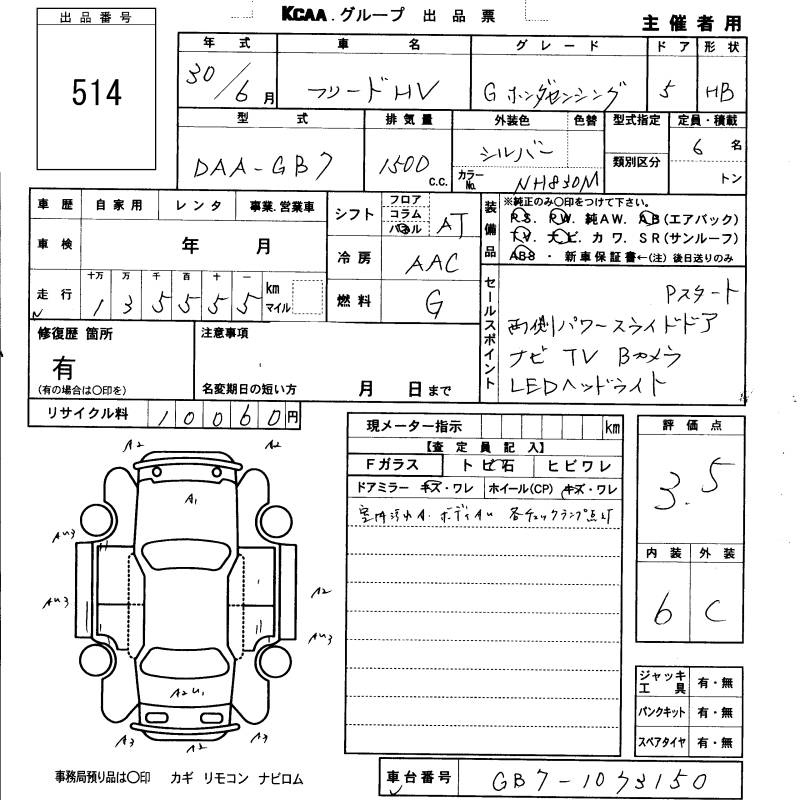 KCAA.グループ 出品票
主催者用
出品番号
514
年式 車名 グレード ドア 形状
30/6月 フリードHV Gホンダセンシング 5 HB
型式 排気量 外装色 色替 型式指定 定員・積載
DAA-GB7 1500 c.c. シルバー 6名
カラーNo. NH830M 類別区分 トン
車歴 自家用 レンタ 事業.営業車
車検 年 月
走行 十万 万 千 百 十 一 km マイル
1 3 5 5 5 5
シフト フロア コラム パネル AT
冷房 AAC
燃料 G
装備品
※純正のみ〇印をつけて下さい。
P.S. P.W. 純AW. A.B(エアバック)
T.V. ナビ カワ. SR(サンルーフ)
ABS ・ 新車保証書←(注)後日送りのみ
セールスポイント
Pスタート
両側パワースライドドア
ナビ TV Bカメラ
LEDヘッドライト
修復歴 箇所
有
(有の場合は〇印を)
注意事項
名変期日の短い方 月 日まで
リサイクル料 10060円
現メーター指示 km
【査定員記入】
Fガラス トビ石 ヒビワレ
ドアミラー キズ・ワレ ホイール(CP) キズ・ワレ
室内汚れA. ボディAU 各チェックランプ点灯
評価点
3.5
内装 外装
6 C
ジャッキ工具 有・無
パンクキット 有・無
スペアタイヤ 有・無
A2 A2
A1
AU3
AU3 A2
AU3
A2 U1
A3 A2 A3
事務局預り品は〇印 カギ リモコン ナビロム
車台番号 GB7-1073150